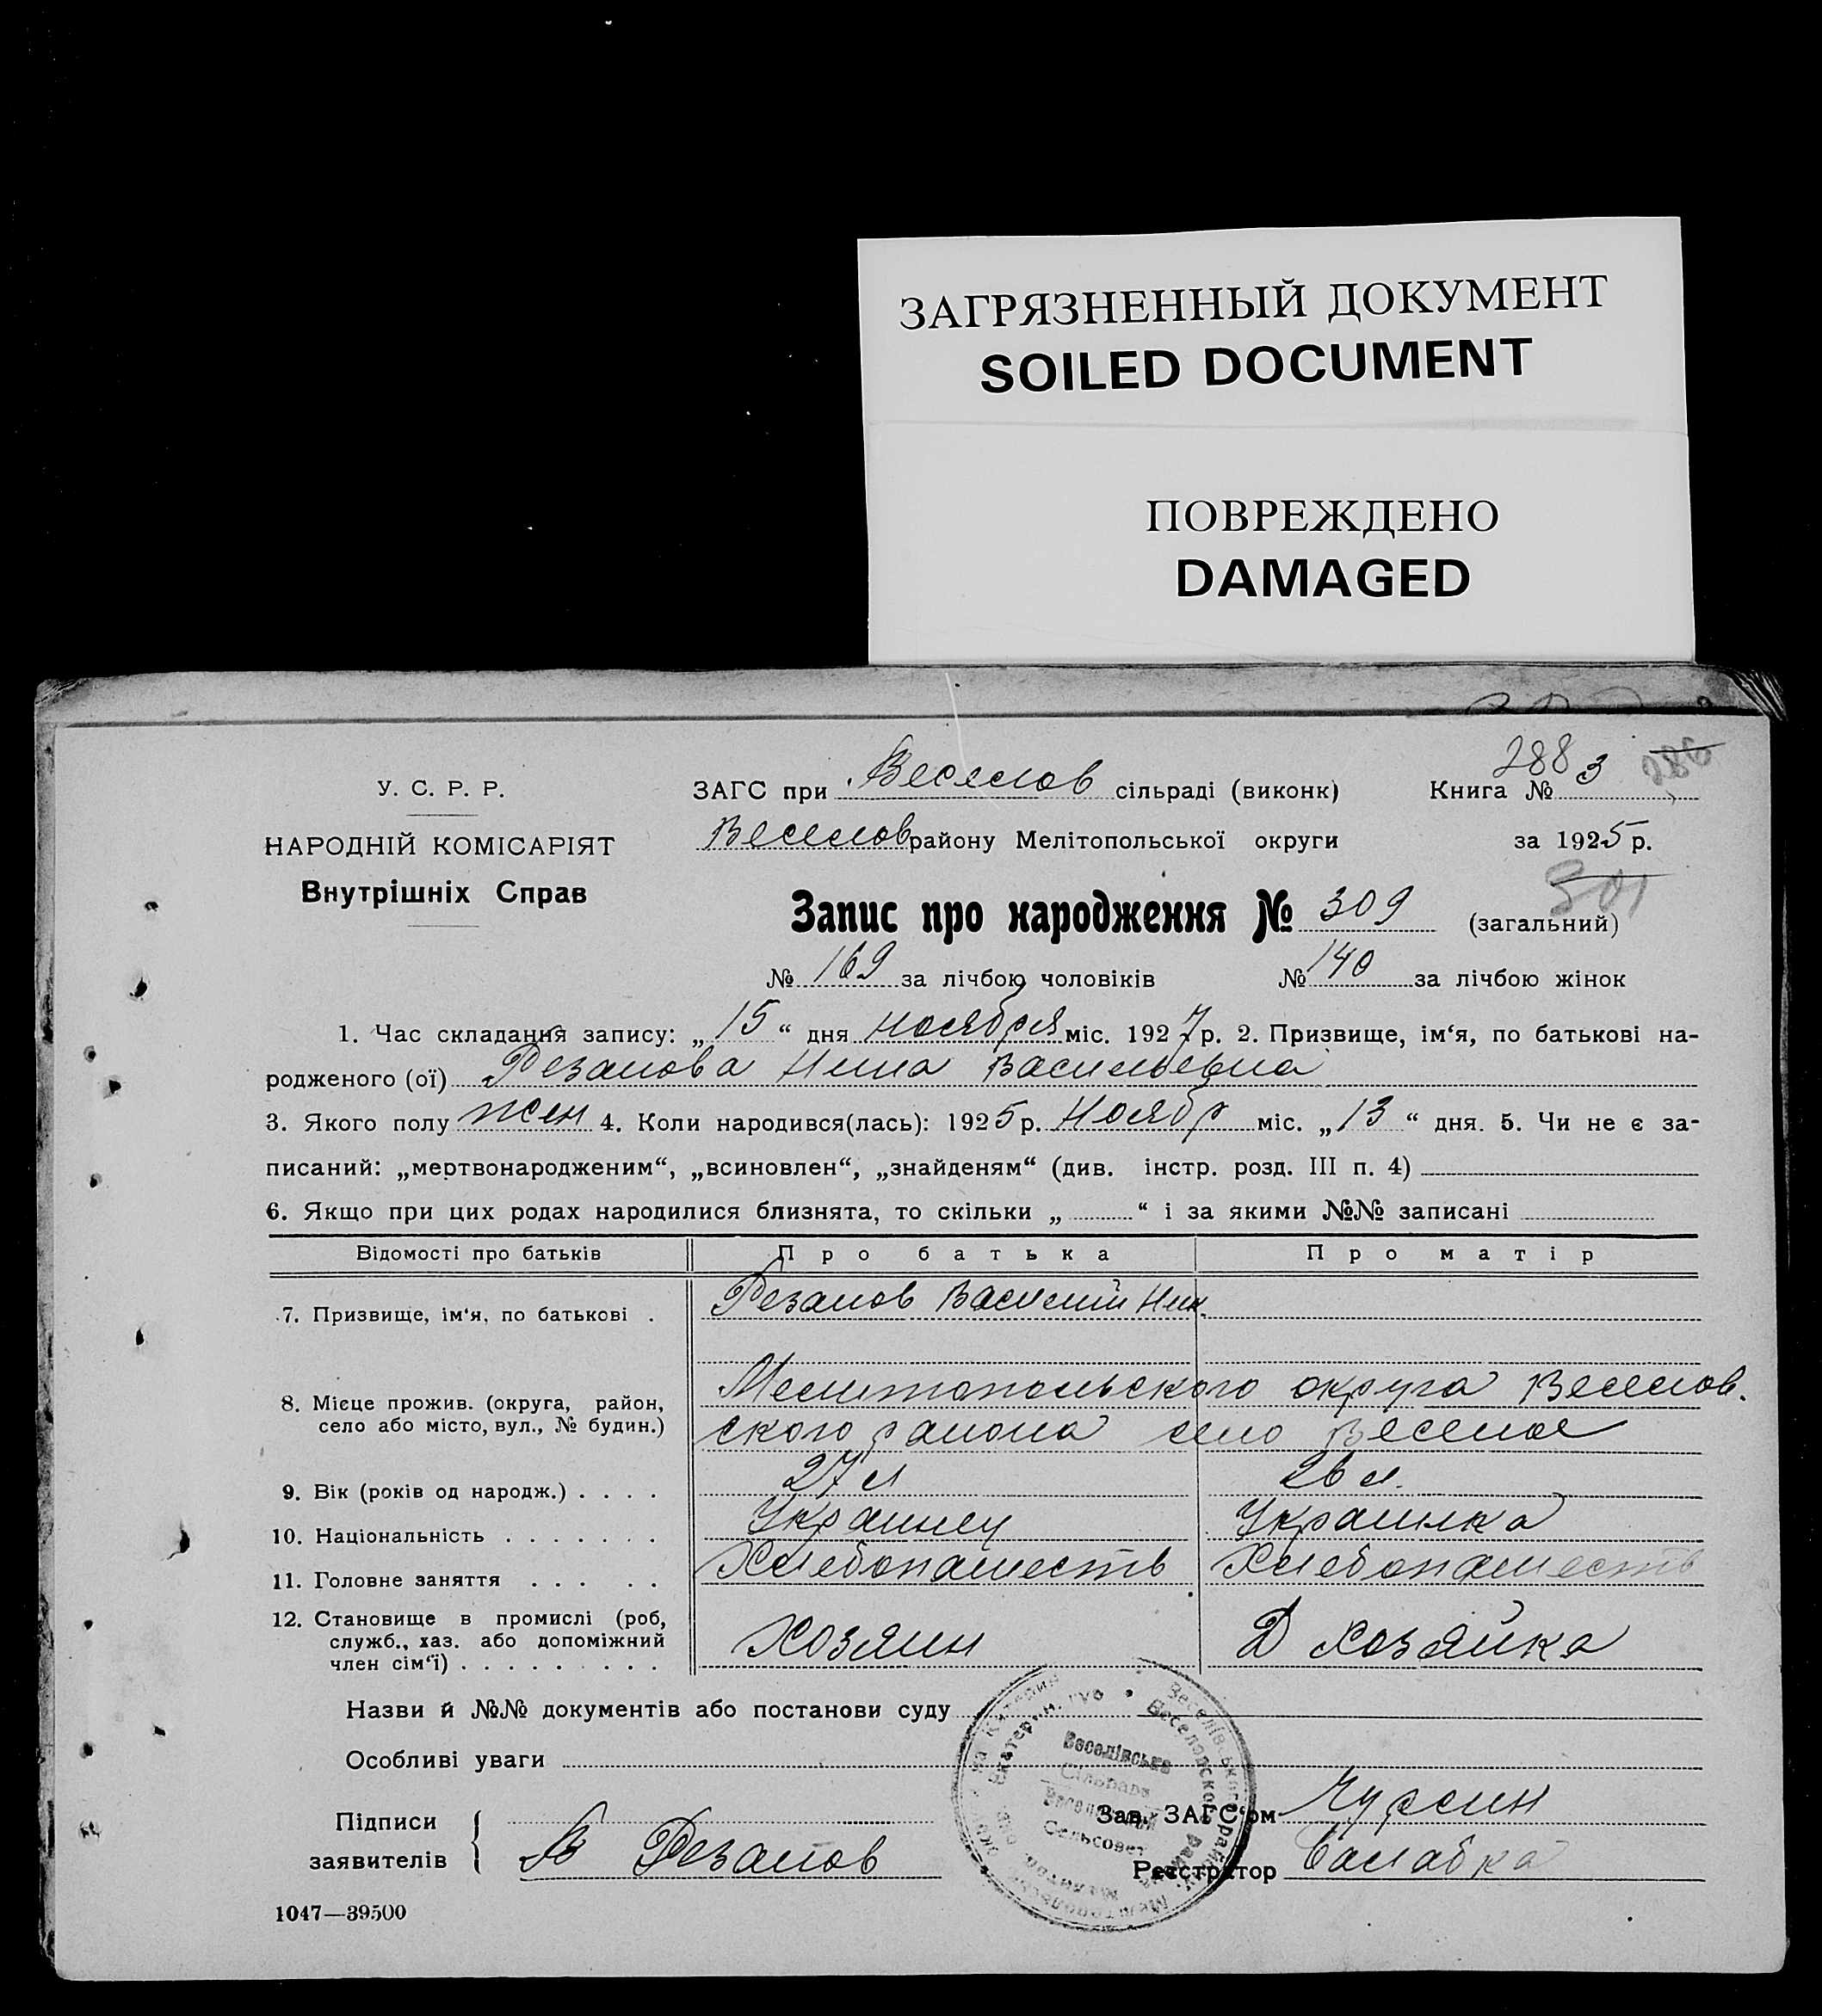 ЗАГРЯЗНЕННЫЙ ДОКУМЕНТ
SOILED DOCUMENT
ПОВРЕЖДЕНО
DAMAGED
288
У. С. Р. Р.
ЗАГС при Веселов сільраді (виконк) Книга № 3
НАРОДНІЙ КОМІСАРІЯТ
Внутрішніх Справ
Веселов району Мелітопольської округи за 1925 р.
301
Запис про народження № 309 (загальний)
№ 169 за лічбою чоловіків № 140 за лічбою жінок
1. Час складання запису: „15“ дня ноября міс. 1927 р. 2. Призвище, ім‘я, по батькові на-
родженого (ої) Резанова Нина Васильевна
3. Якого полу жен 4. Коли народився(лась): 1925 р. Ноябр міс. „13“ дня. 5. Чи не є за-
писаний: „мертвонародженим“, „всиновлен“, „знайденям“ (див. інстр. розд. III п. 4)
6. Якщо при цих родах народилися близнята, то скільки „ “ і за якими №№ записані
Відомості про батьків Про батька Про матір
7. Призвище, ім‘я, по батькові . Резанов Василий Ник.
8. Місце прожив. (округа, район,
село або місто, вул., № будин.)
Мелитопольского округа Веселов.
ского района село Веселое
9. Вік (років од народж.) . . . . 27 л 26 л.
10. Національність . . . . . . . Украинец Украинка
11. Головне заняття . . . . . Хлебопашеств Хлебопашеств
12. Становище в промислі (роб,
служб., хаз. або допоміжний
член сім‘ї) . . . . . . . . . Хозяин Д Хозяйка
Назви й №№ документів або постанови суду
Особливі уваги
Веселівська
Сільрада
Сельсовет
Підписи
заявителів
В Резанов
Зав. ЗАГС‘ом Чурсин
Реєстратор
1047—39500